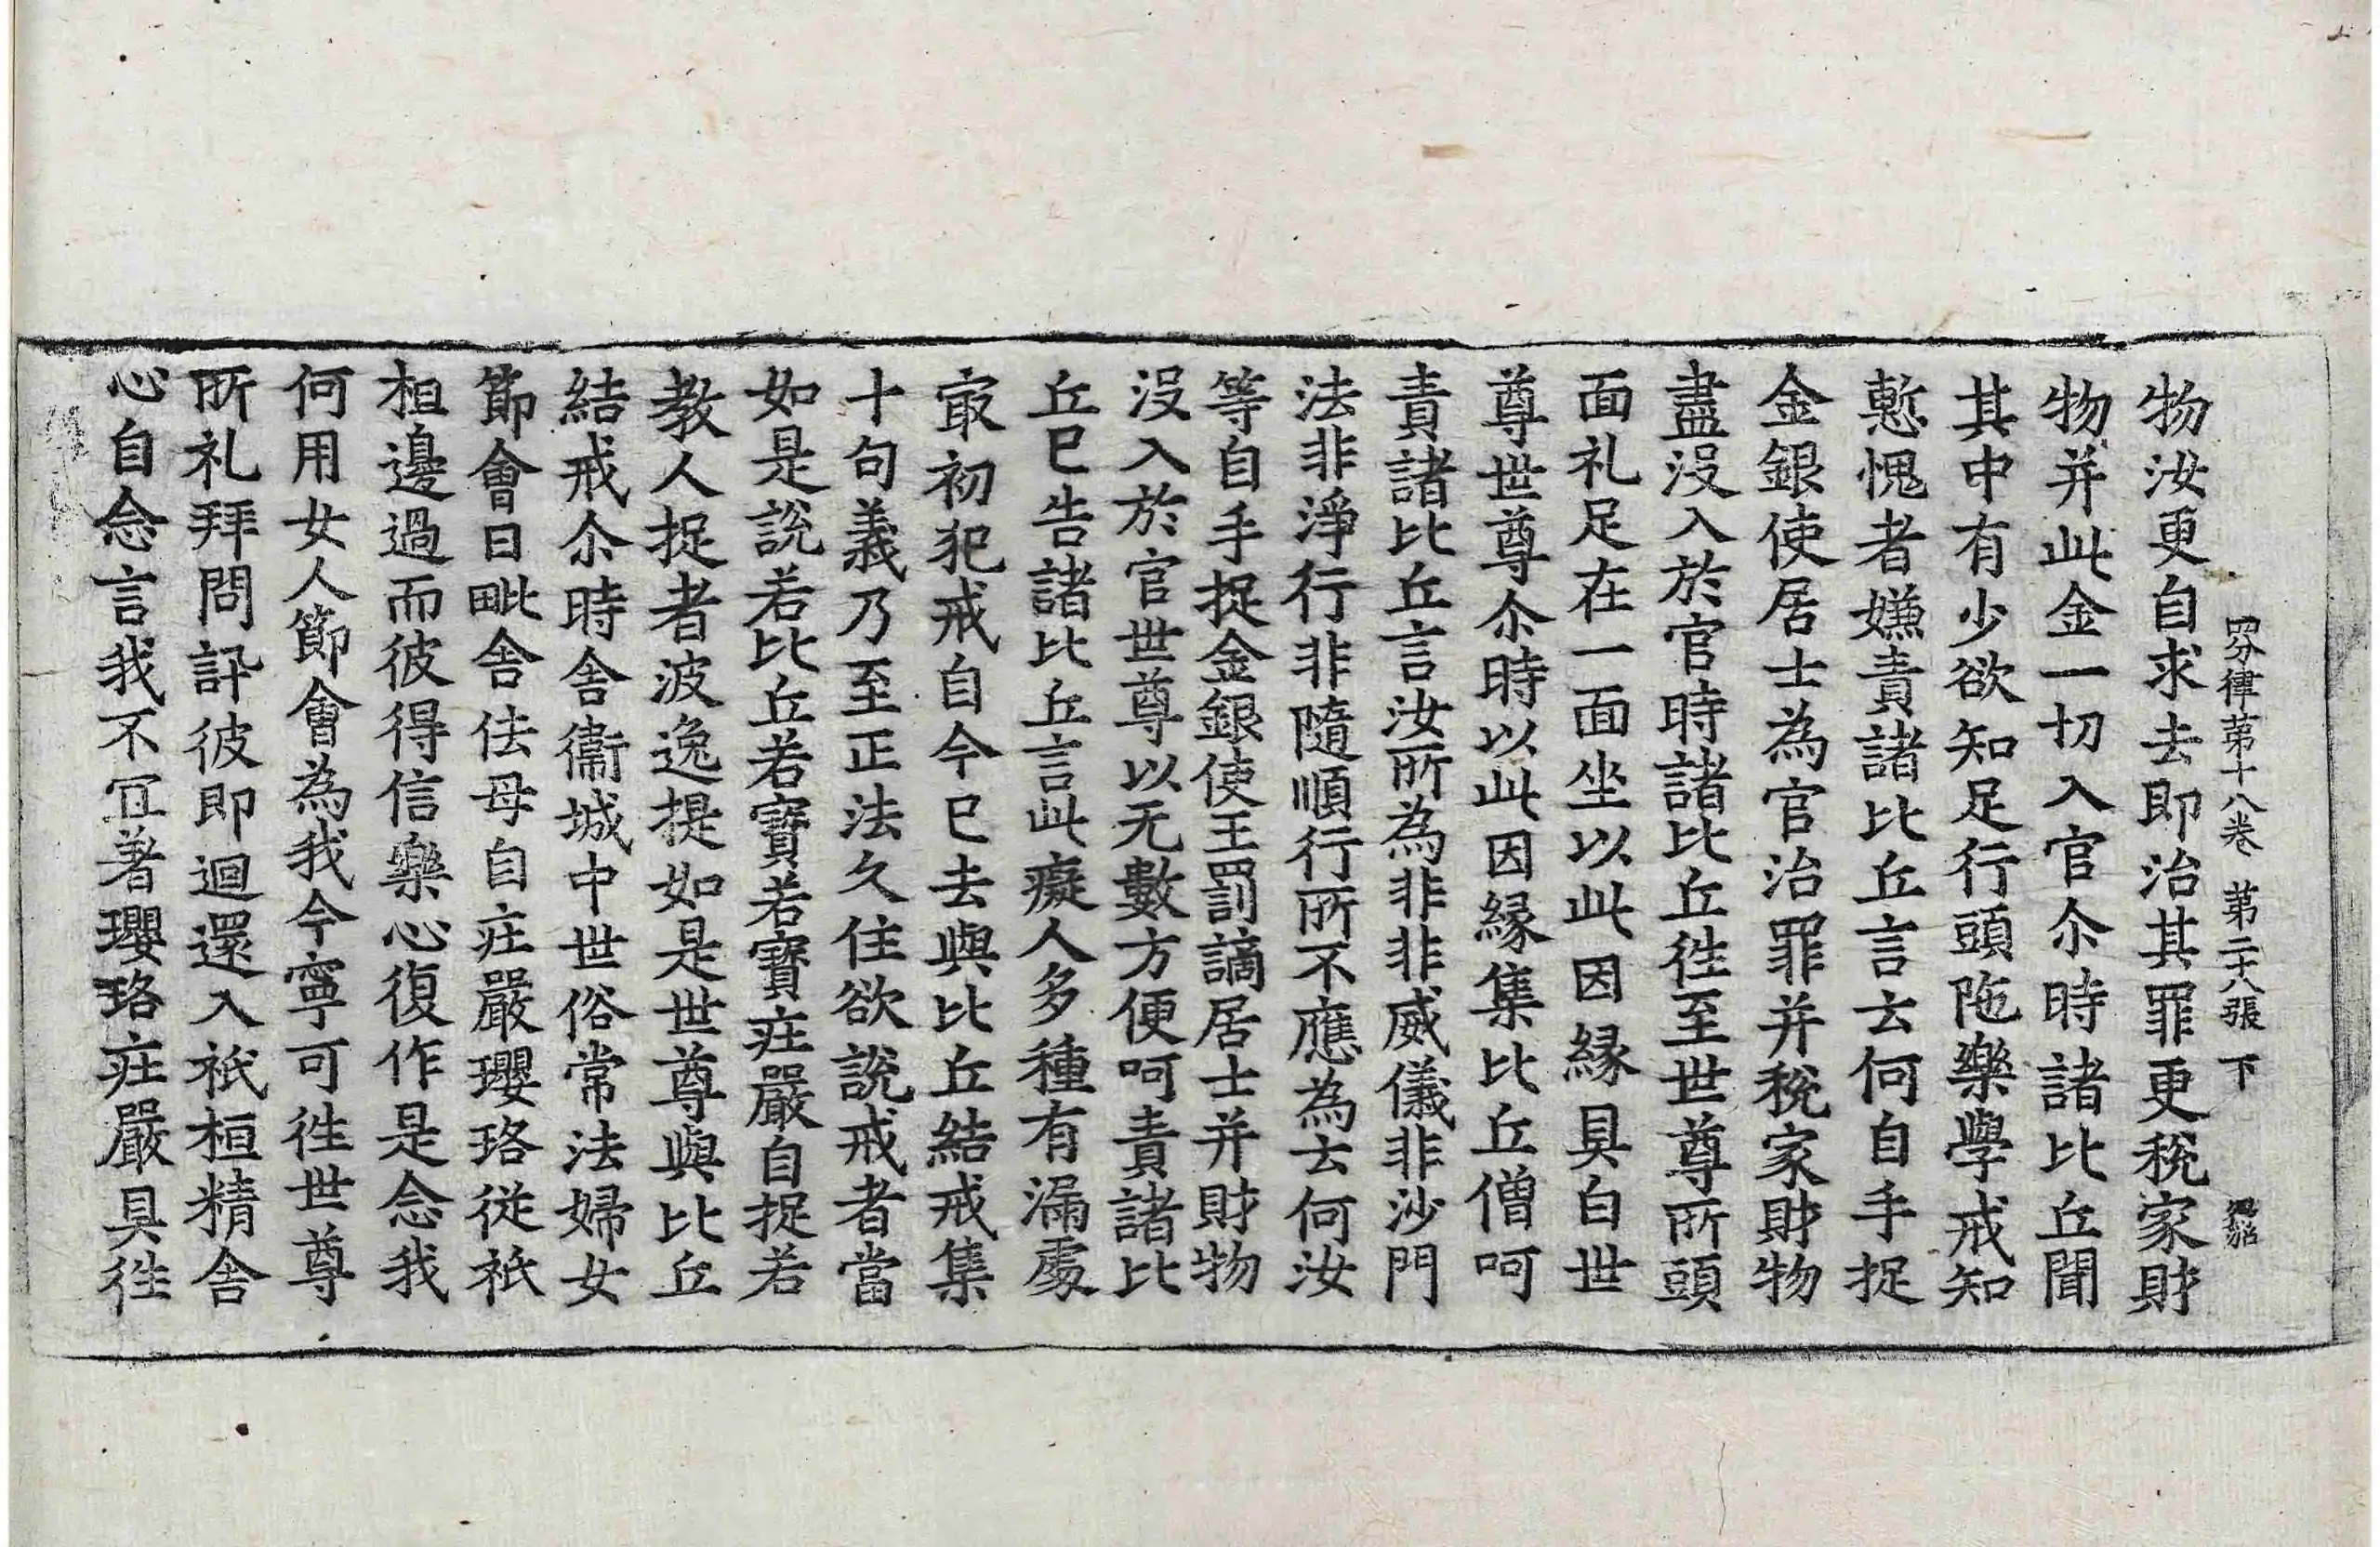 四分律第十八卷 第二十八張 下
物汝更自求去即治其罪更稅家財
物并此金一切入官尒時諸比丘聞
其中有少欲知足行頭陁樂學戒知
慙愧者嫌責諸比丘言云何自手捉
金銀使居士為官治罪并稅家財物
盡沒入於官時諸比丘徃至世尊所頭
面礼足在一面坐以此因緣具白世
尊世尊尒時以此因緣集比丘僧呵
責諸比丘言汝所為非非威儀非沙門
法非淨行非隨順行所不應為云何汝
等自手捉金銀使王罰讁居士并財物
沒入於官世尊以无數方便呵責諸比
丘已告諸比丘言此癡人多種有漏處
㝡初犯戒自今已去與比丘結戒集
十句義乃至正法久住欲說戒者當
如是說若比丘若寶若寶莊嚴自捉若
教人捉者波逸提如是世尊與比丘
結戒尒時舍衛城中世俗常法婦女
節會日毗舍佉母自莊嚴瓔珞從祇
桓邊過而彼得信樂心復作是念我
何用女人節會為我今寧可徃世尊
所礼拜問訊彼即迴還入祇桓精舍
心自念言我不冝著瓔珞莊嚴具徃